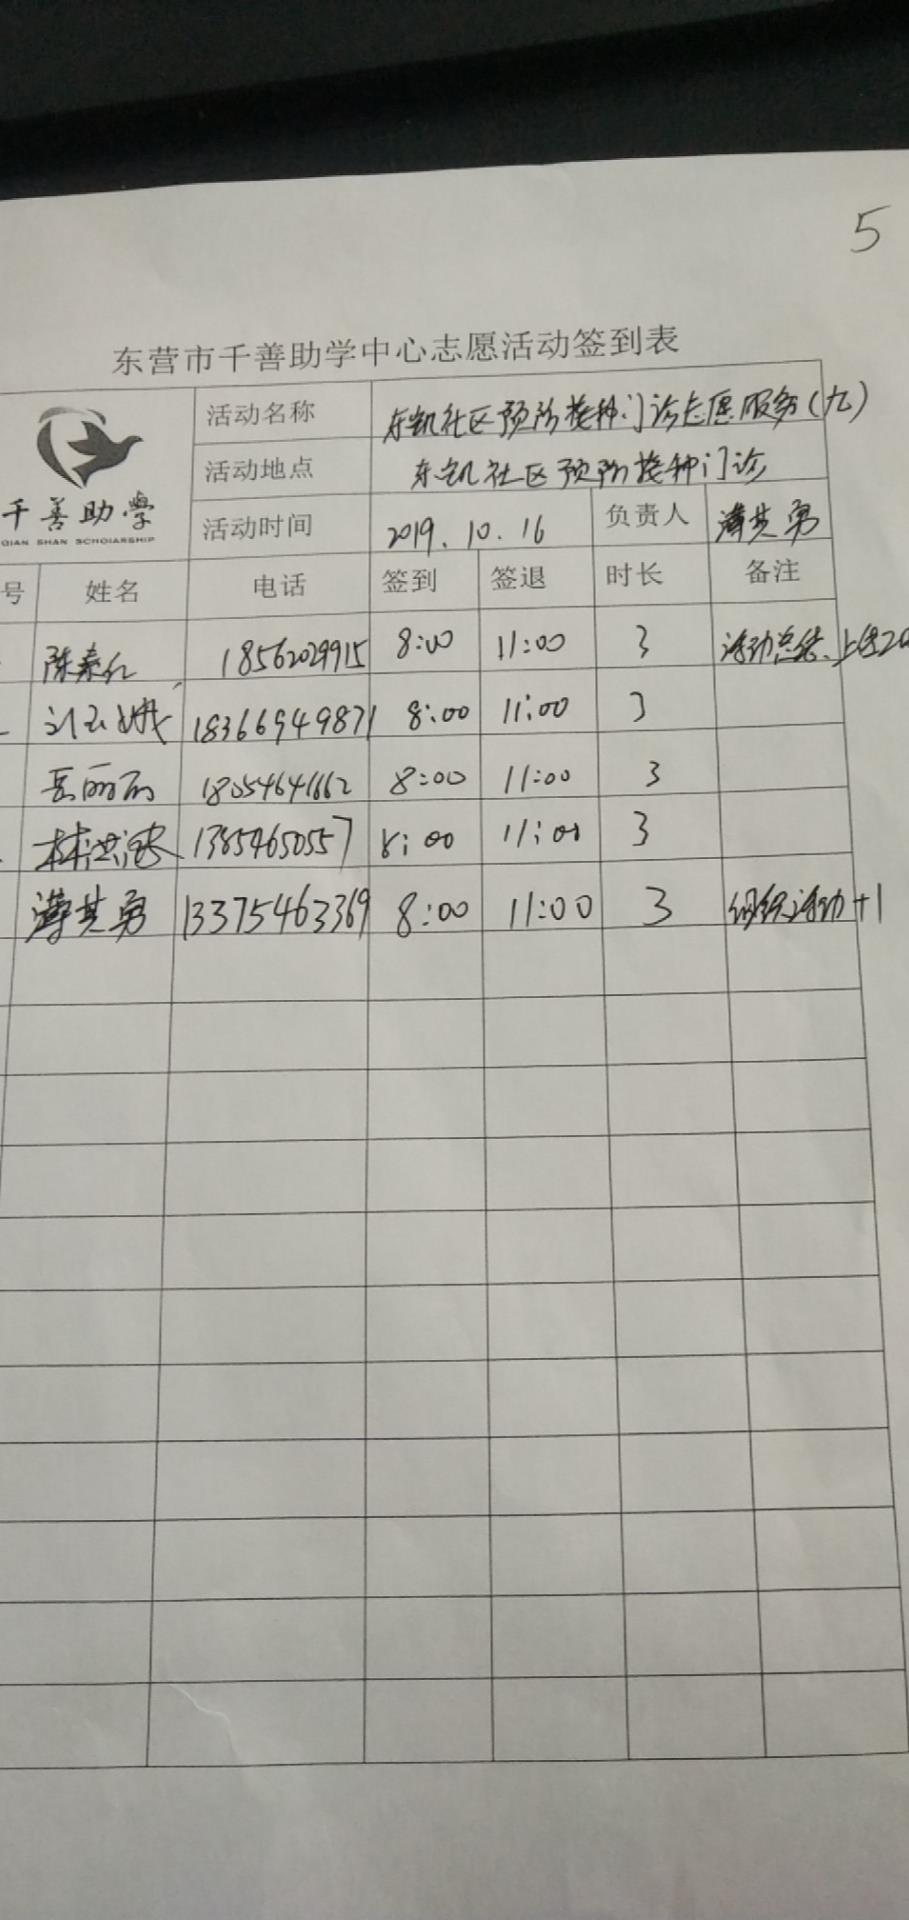 5
东营市千善助学中心志愿活动签到表
千善助学
QIAN SHAN SCHOIARSHIP
活动名称 东凯社区预防接种门诊志愿服务(九)
活动地点 东凯社区预防接种门诊
活动时间 2019.10.16 负责人 薄其勇
号 姓名 电话 签到 签退 时长 备注
陈秦红 18562029915 8:00 11:00 3 活动总结、上传
刘玉娥 18366949871 8:00 11:00 3
岳丽丽 18054641662 8:00 11:00 3
林洪 13854650557 8:00 11:00 3
薄其勇 13375463369 8:00 11:00 3 组织活动+1